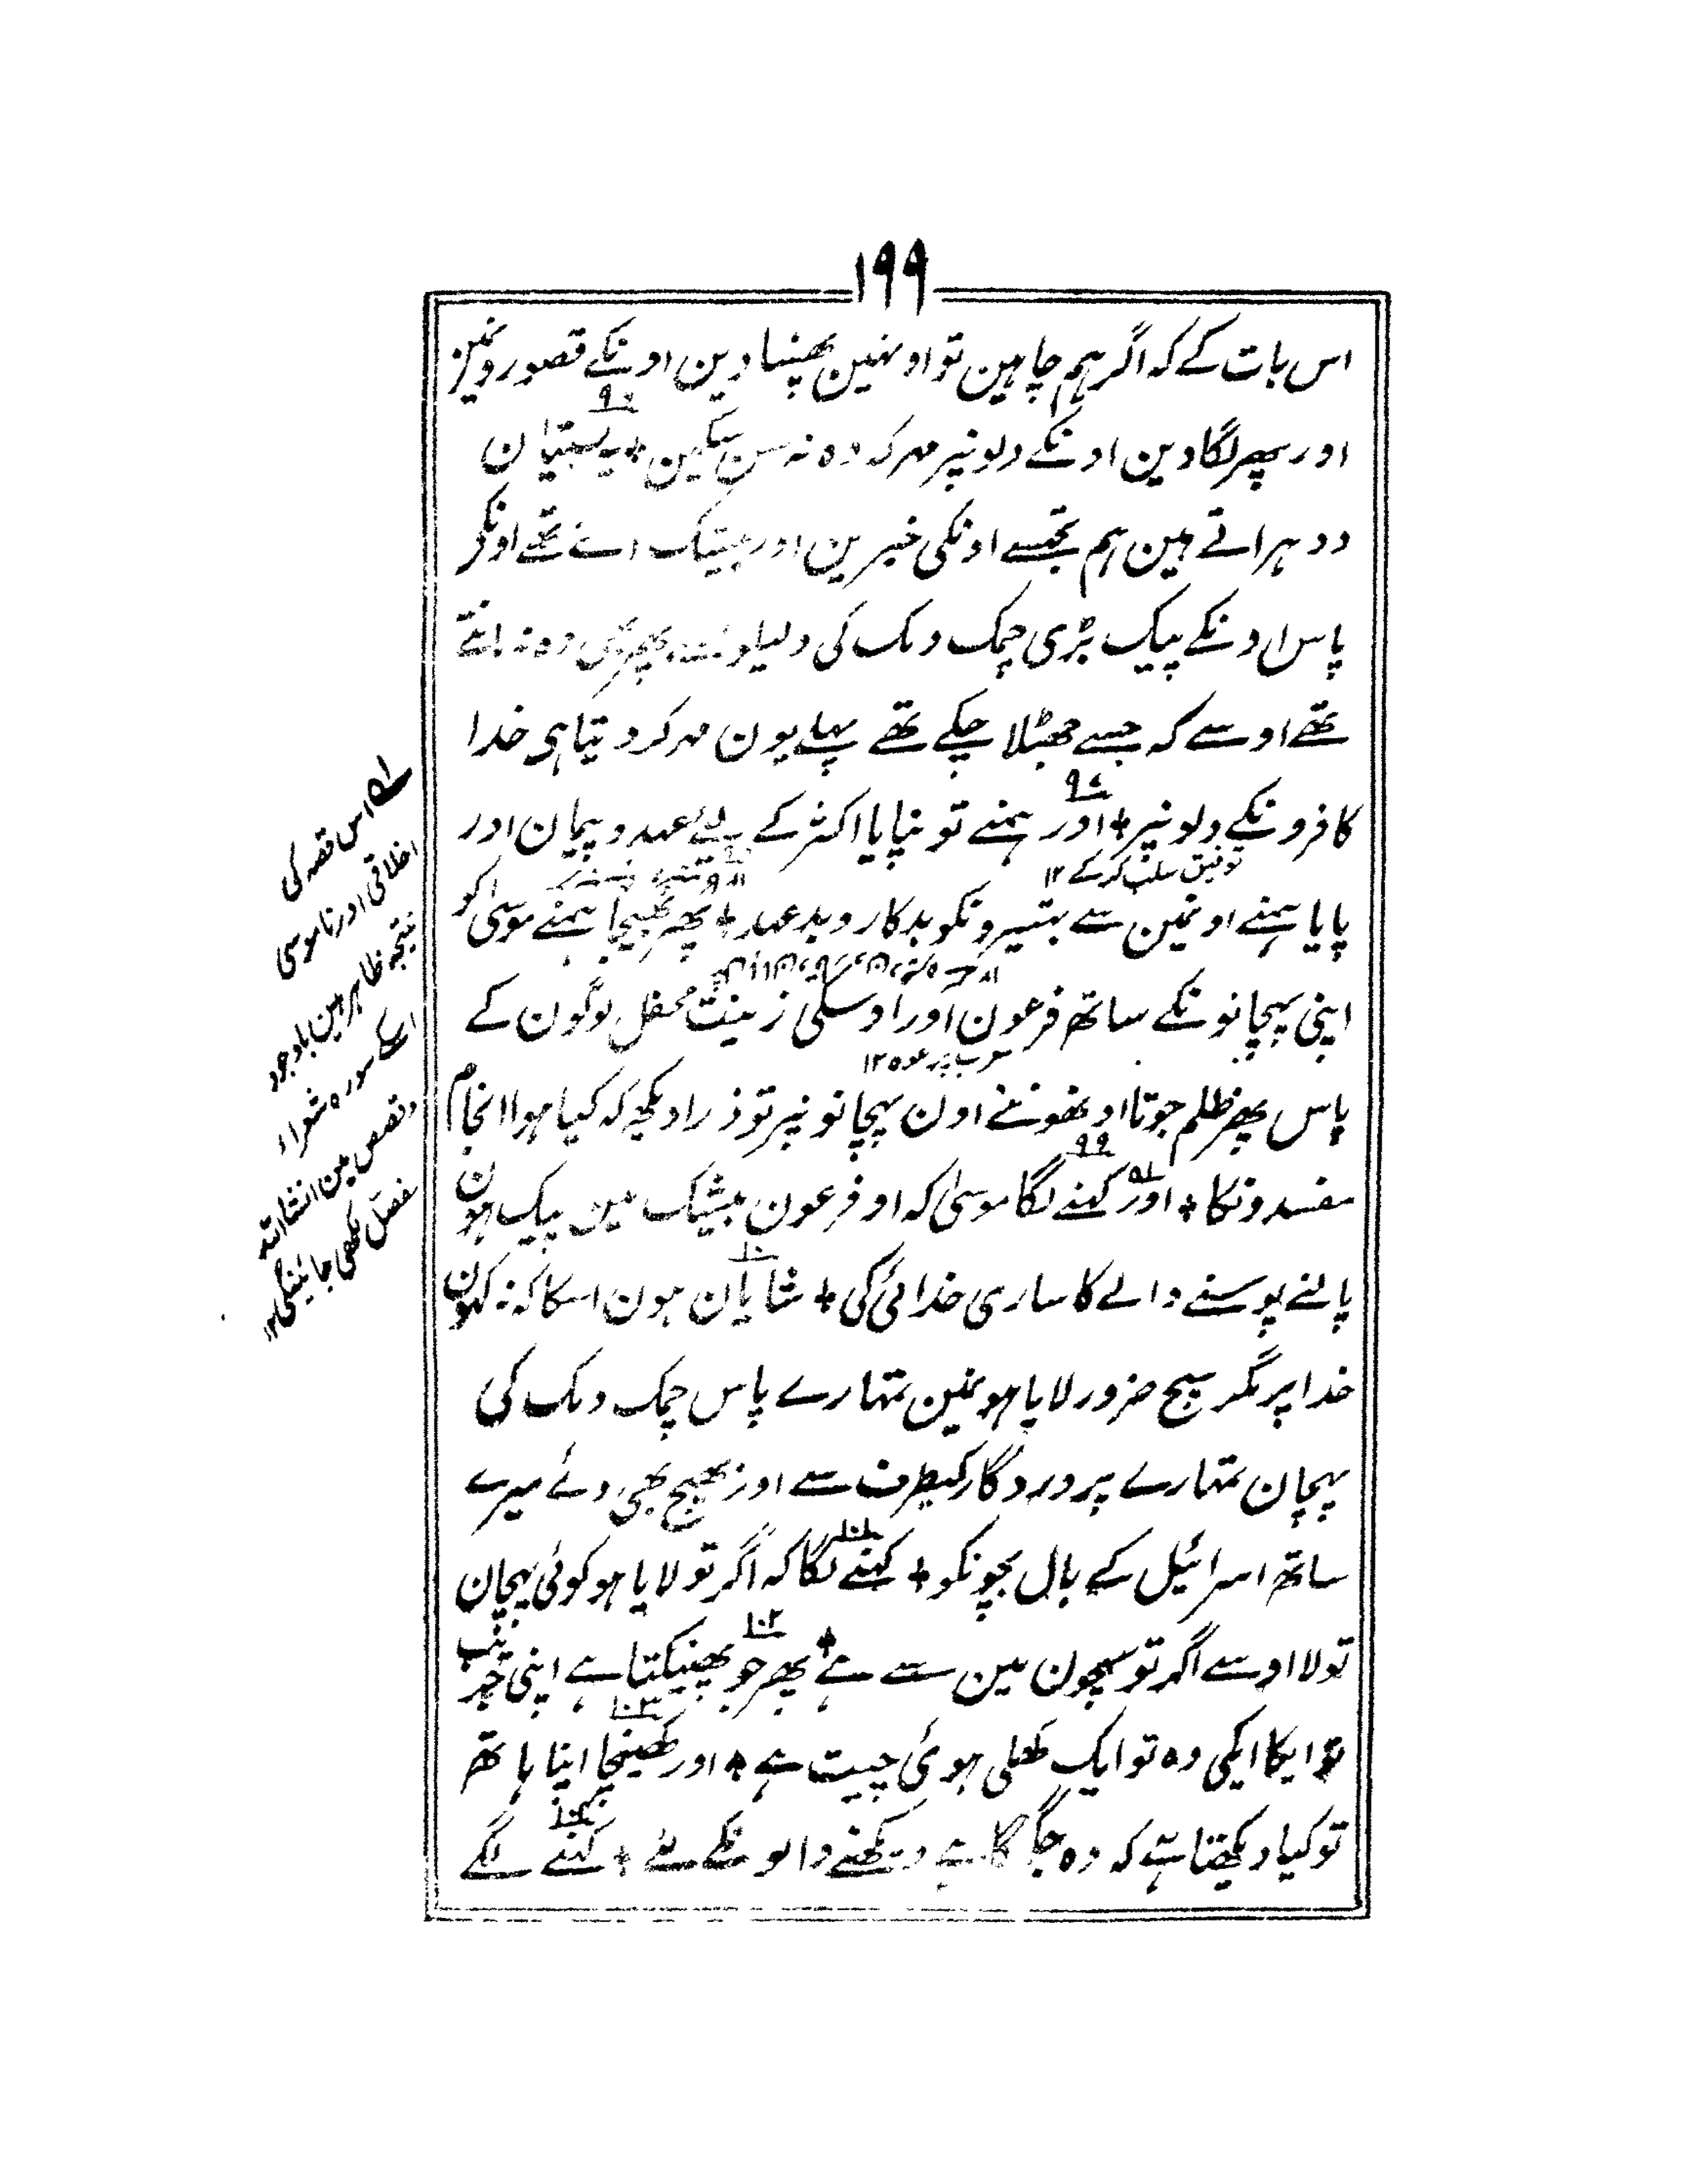 ۱۹۹
اس بات کے کہ اگر ہم چاہین تو اونہین پھنسا دین اونکے قصورونمین
اور پھر لگا دین اونکے دلونپر مہر کہ وہ نہ سن سکین + یہ بستیان
دوہراتے ہین ہم تجھسے اونکی خبرین اور بیشک اے تھے اونکے
پاس اونکے پیک بڑی چمک دمک کی پھر بھی وہ نہ مانتے
تھے اوسے کہ جسے جھٹلا چکے تھے پہلے یون مہر کر دیتا ہی خدا
کافرونکے دلونپر + اور ہمنے تو نپایا اکثر کے لئے عہد و پیمان اور
توفیق سلب کرکے ۱۲
پایا ہمنے اونمین سے بہتیرونکو بدکار و بدعہد + پھر بھیجا ہمنے موسی کو
اپنی پہچانونکے ساتھ فرعون اور اوسکی زینت محفل لوگون کے
پاس پھر ظلم جوتا اونھونے اون پہچانونپر تو ذرا دیکھ کہ کیا ہوا انجام
۹۹
مفسدونکا + اور کہنے لگا موسیٰ کہ او فرعون بیشک مین پیک ہون
پالنے پوسنے والے کا ساری خدائی کی + شایان ہون اسکا کہ نہ کہون
خدا پر مگر سچ ضرور لایا ہونمین تمہارے پاس چمک دمک کی
پہچان تمہارے پروردگار کیطرف سے اور بھیج بھی دے میرے
ساتھ اسرائیل کے بال بچونکو + کہنے لگا کہ اگر تو لایا ہو کوئی پہچان
۱۰۲
تو لا اوسے اگر تو سچون مین سے ہے + پھر جو پھینکتا ہے اپنی جریب
۱۰۳
تو ایکا ایکی وہ تو ایک کھلی ہوئی چیت ہے + اور کھینچا اپنا ہاتھ
تو کیا دیکھتا ہے کہ وہ جگمگا ہے دیکھنے والونکے لئے + کہنے لگے
اس قصہ کی
اخلاقی اور ناموسی
نتیجہ ظاہر ہین باوجود
اسکے سورہ شعراء
و قصص مین انشااللہ
مفصل لکھی جائینگی ۱۲